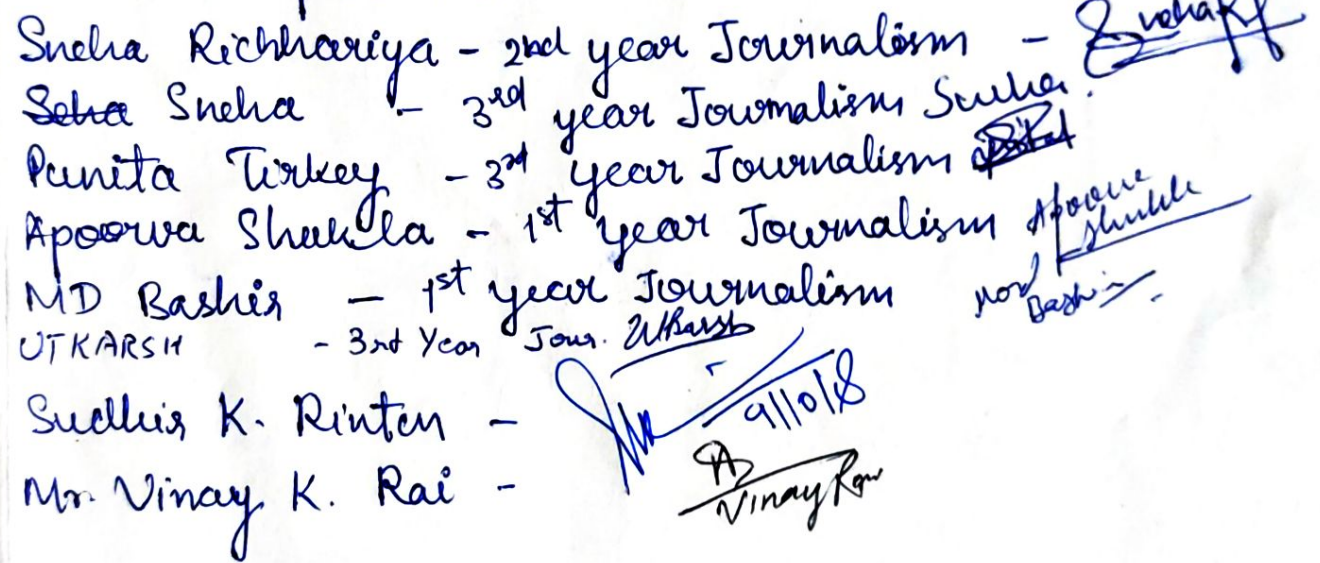 Sneha Richhariya - 2nd year Journalism - Sneha
Seha Sneha - 3rd year Journalism Sneha.
Punita Tirkey - 3rd year Journalism
Apoorva Shukla - 1st year Journalism Apoorva Shukla
MD Bashir - 1st year Journalism Mod Bashir
UTKARSH - 3rd Year Jour. Utkarsh
Sudhir K. Rinten - 9/10/18
Mr. Vinay K. Rai - Vinay Rai